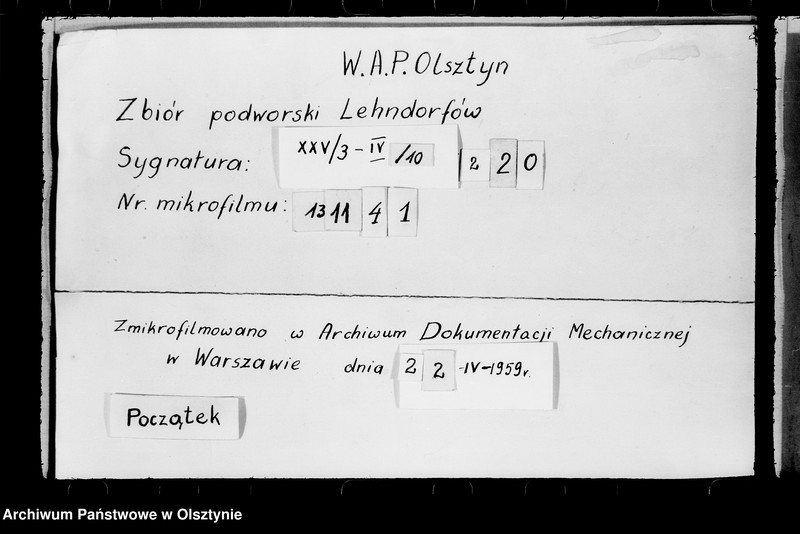 W.A.P. Olsztyn
Zbiór podworski Lehndorfów
Sygnatura: XXV/3 - IV /10 2 2 0
Nr. mikrofilmu: 13 11 4 1
Zmikrofilmowano w Archiwum Dokumentacji Mechanicznej
w Warszawie dnia 2 2 -IV-1959r.
Początek
Archiwum Państwowe w Olsztynie